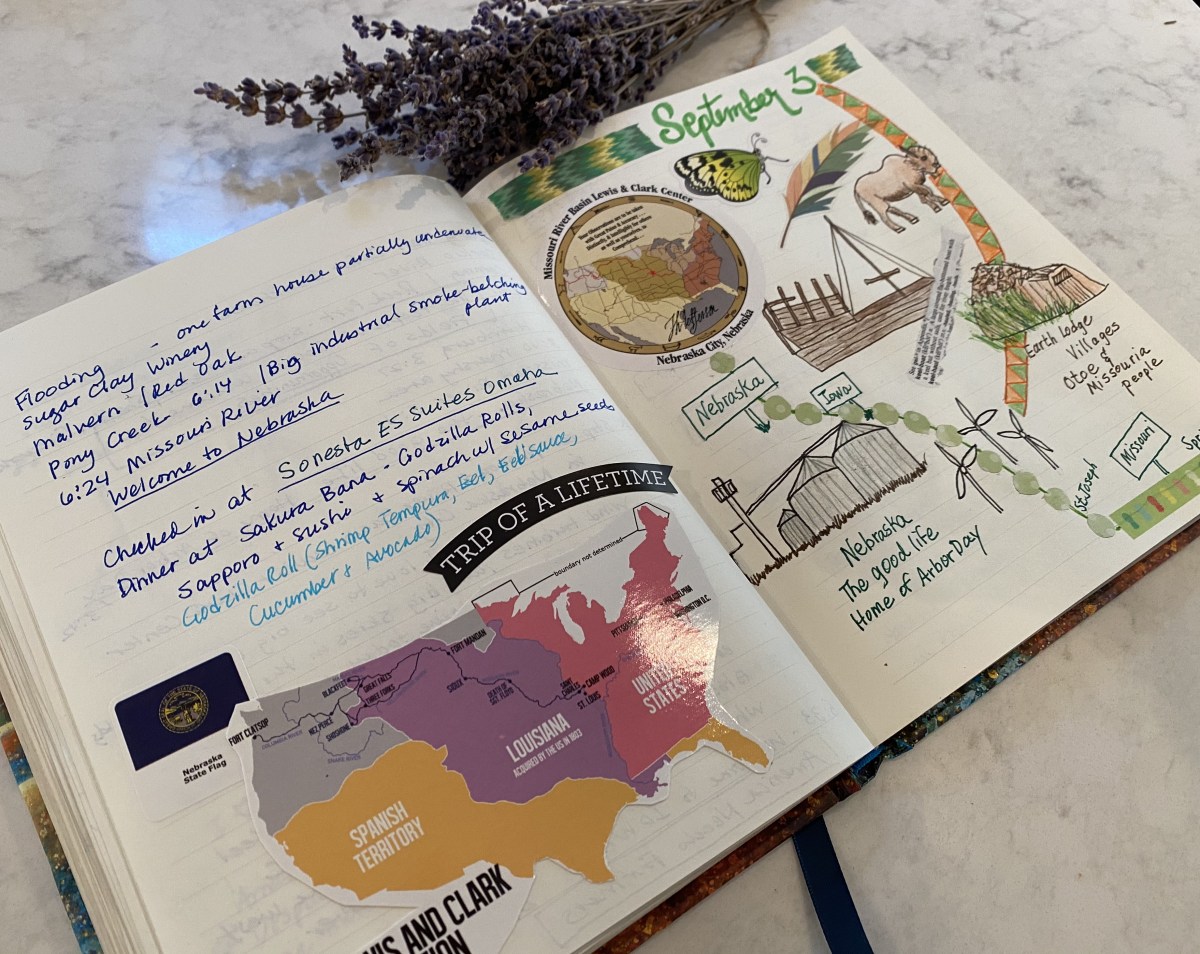 Flooding - one farm house partially underwate
Sugar Clay Winery
Malvern / Red Oak
Pony Creek 6:14 / Big industrial smoke-belching plant
6:24 Missouri River
Welcome to Nebraska
Checked in at Sonesta ES Suites Omaha
Dinner at Sakura Bana - Godzilla Rolls,
Sapporo & Sushi & Spinach w/ Sesame seeds
Godzilla Roll (Shrimp Tempura, Eel, Eel sauce,
Cucumber & Avocado)
TRIP OF A LIFETIME
boundary not determined
PHILADELPHIA
WASHINGTON D.C.
PITTSBURGH
FORT MANDAN
GREAT FALLS
THREE FORKS
BLACKFEET
SIOUX
DEATH OF SGT. FLOYD
SAINT CHARLES
CAMP WOOD
ST. LOUIS
UNITED STATES
FORT CLATSOP
COLUMBIA RIVER
NEZ PERCE
SHOSHONE
SNAKE RIVER
LOUISIANA
ACQUIRED BY THE US IN 1803
SPANISH
TERRITORY
Nebraska
State Flag
IS AND CLARK
TION
September 3
Missouri River Basin Lewis & Clark Center
Th Jefferson
Nebraska City, Nebraska
Earth Lodge
Villages
Otoe &
Missouria
People
Nebraska
Iowa
Missouri
St. Joseph
Spri
Nebraska
The good life
Home of Arbor Day